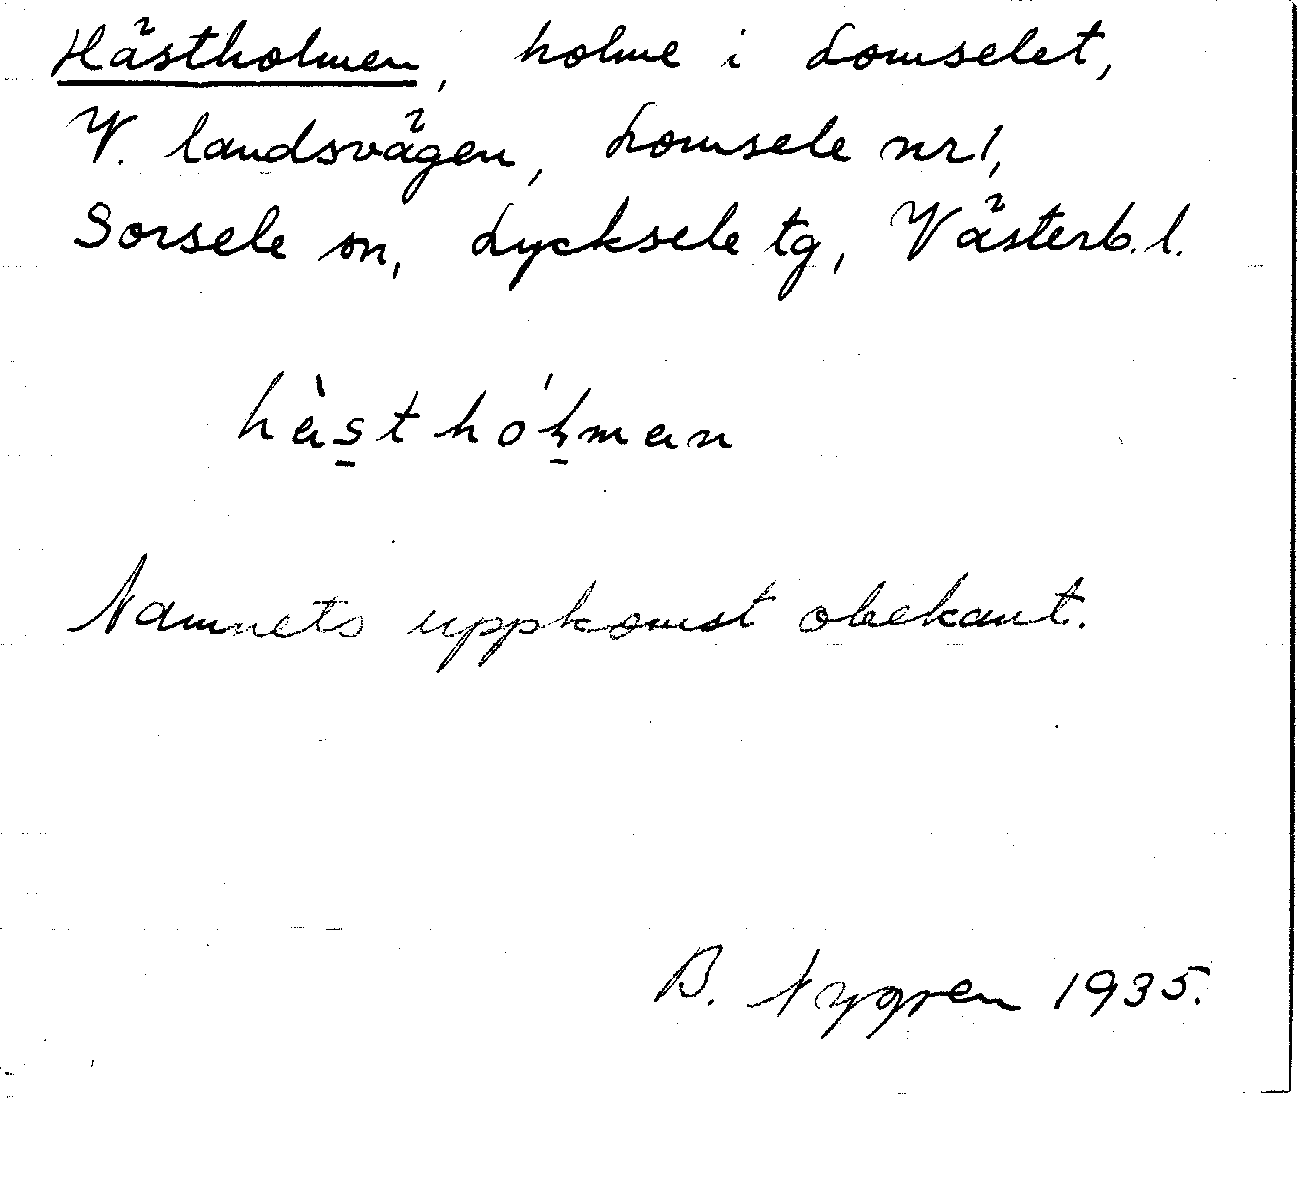 Hästholmen, holme i Lomselet,
V. landsvägen, Lomsele nr 1,
Sorsele sn, Lycksele tg, Västerb. l.
Namnets uppkomst obekant.
B. Nygren 1935.